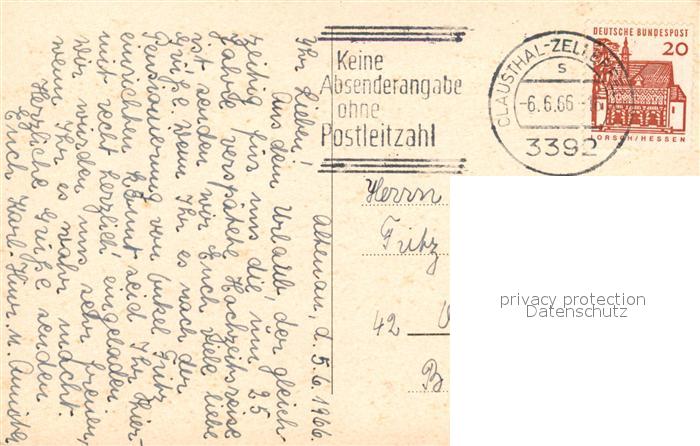 Altenau, d. 5.6.1966
Ihr Lieben!
Aus dem Urlaub, der gleich-
zeitig für uns die um 25
Jahre verspätete Hochzeitsreise
ist senden wir Euch viele liebe
Grüße. Wenn Ihr es nach der
Pensionierung von Onkel Fritz
einrichten könnt seid Ihr hier-
mit recht herzlich eingeladen
wir würden uns sehr freuen,
wenn Ihr es wahr macht.
Herzliche Grüße senden
Euch Karl-Heinz u. Annicke
Keine
Absenderangabe
ohne
Postleitzahl
CLAUSTHAL-ZELL
s
-6.6.66
3392
DEUTSCHE BUNDESPOST
20
LORSCH/HESSEN
Herrn
Fritz
42
B
privacy protection
Datenschutz